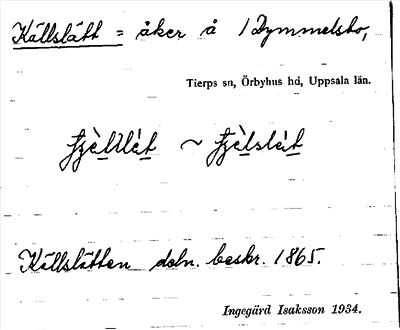 Källslätt = åker å Dymmelsbo,
Tierps sn, Örbyhus hd, Uppsala län.
Källslätten dobn. beskr. 1865.
Ingegärd Isaksson 1934.